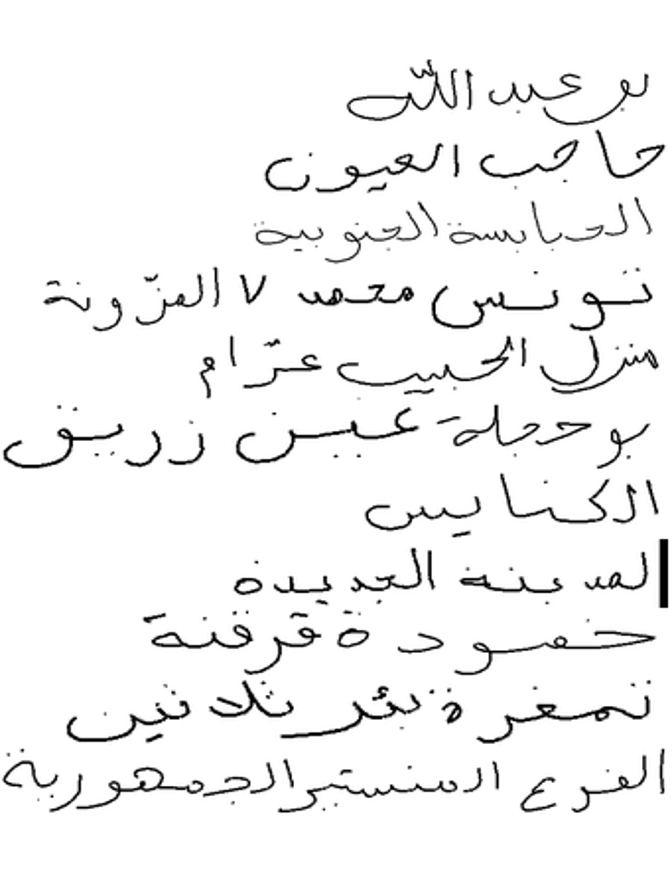 بو عبد الله
حاجب العيون
الحبابسة الجنوبية
تونس محمد ٧ المزّونة
منزل الحبيب عرّام
بوحجلة عين زريق
الكنايس
المدينة الجديدة
خمودة قرقنة
تمغرة بئر ثلاثين
الفرع المنستير الجمهورية